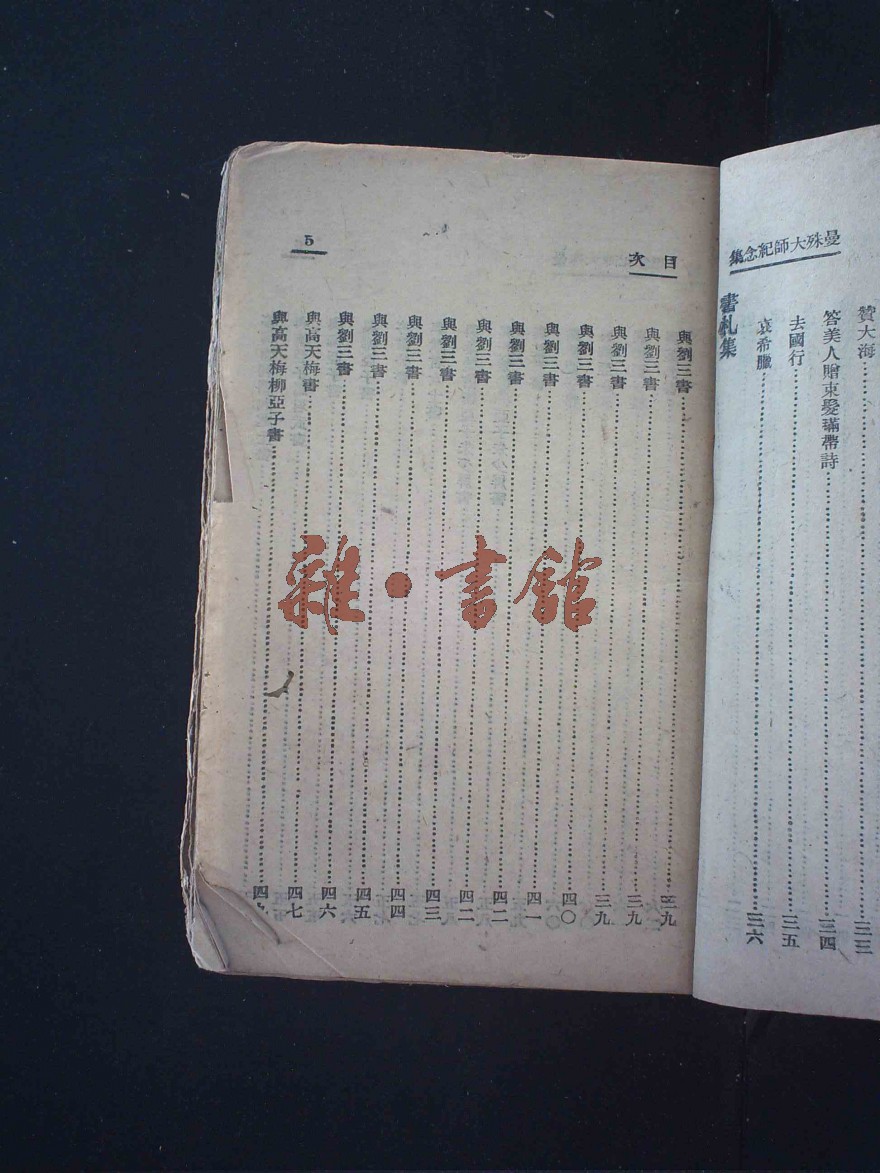 曼殊大師紀念集
贊大海……三三
答美人贈束髮璊帶詩……三四
去國行……三五
哀希臘……三六
書札集
目次
5
與劉三書……三九
與劉三書……三九
與劉三書……三九
與劉三書……四〇
與劉三書……四一
與劉三書……四二
與劉三書……四二
與劉三書……四三
與劉三書……四四
與劉三書……四五
與劉三書……四六
與高天梅書……四七
與高天梅柳亞子書……四九
雜·書館